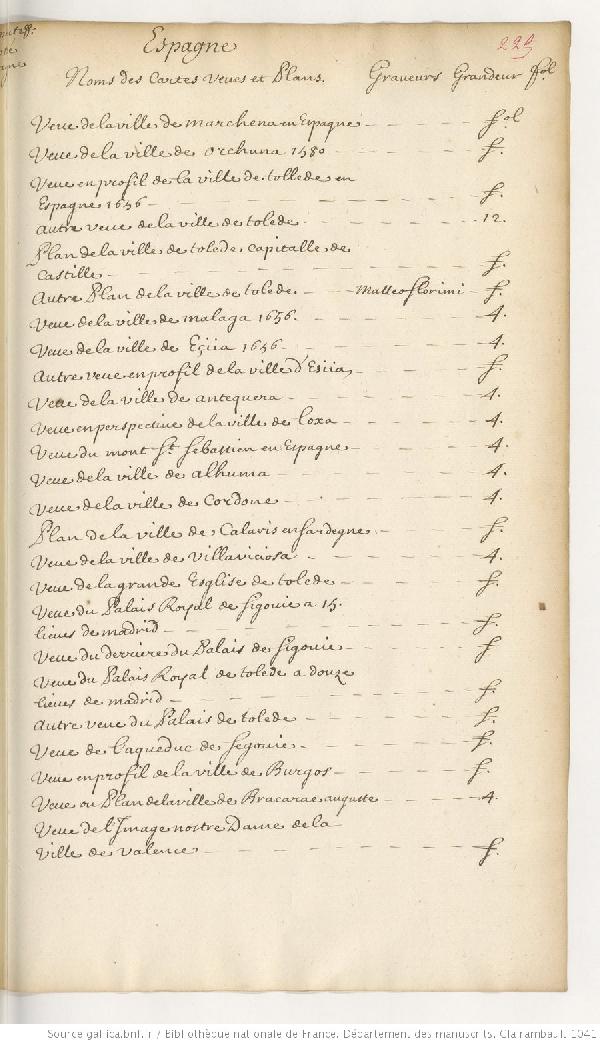 Espagne
229
Noms des Cartes Veues et Plans. Graveurs Grandeur fol
Veue de la ville de marchena en Espagne fol
Veue de la ville de orchuna 1580 f.
Veue en profil de la ville de tollede en
Espagne 1656 f.
autre veue de la ville de tolede 12.
Plan de la ville de tolede capitalle de
Castille f.
Autre Plan de la ville de tolede. Matteo florimi f.
Veue de la ville de malaga 1656. 4.
Veue de la ville de Ezija 1656 4.
Autre veue en profil de la ville d'Esija f.
Veue de la ville de antequera 4.
Veue en perspective de la ville de loxa 4.
Veue du mont St. Sebastien en Espagne 4.
Veue de la ville de alhama 4.
Veue de la ville de Cordoue 4.
Plan de la ville de Calaris en sardegne f.
Veue de la ville de Villaviciosa 4.
Veue de la grande Esglise de tolede f.
Veue du Palais Royal de Segovie a 15.
lieues de madrid f.
Veue du derriere du Palais de Segovie f
Veue du Palais Royal de tolede a douze
lieues de madrid f.
Autre veue du Palais de tolede f.
Veue de l'aqueduc de Segovie f.
Veue en profil de la ville de Burgos f.
Veue ou Plan de la ville de Bracarae auguste 4.
Veue de l'Image nostre Dame de la
Ville de Valence f.
Source gallica.bnf.fr / Bibliothèque nationale de France. Département des manuscrits. Clairambault 1041